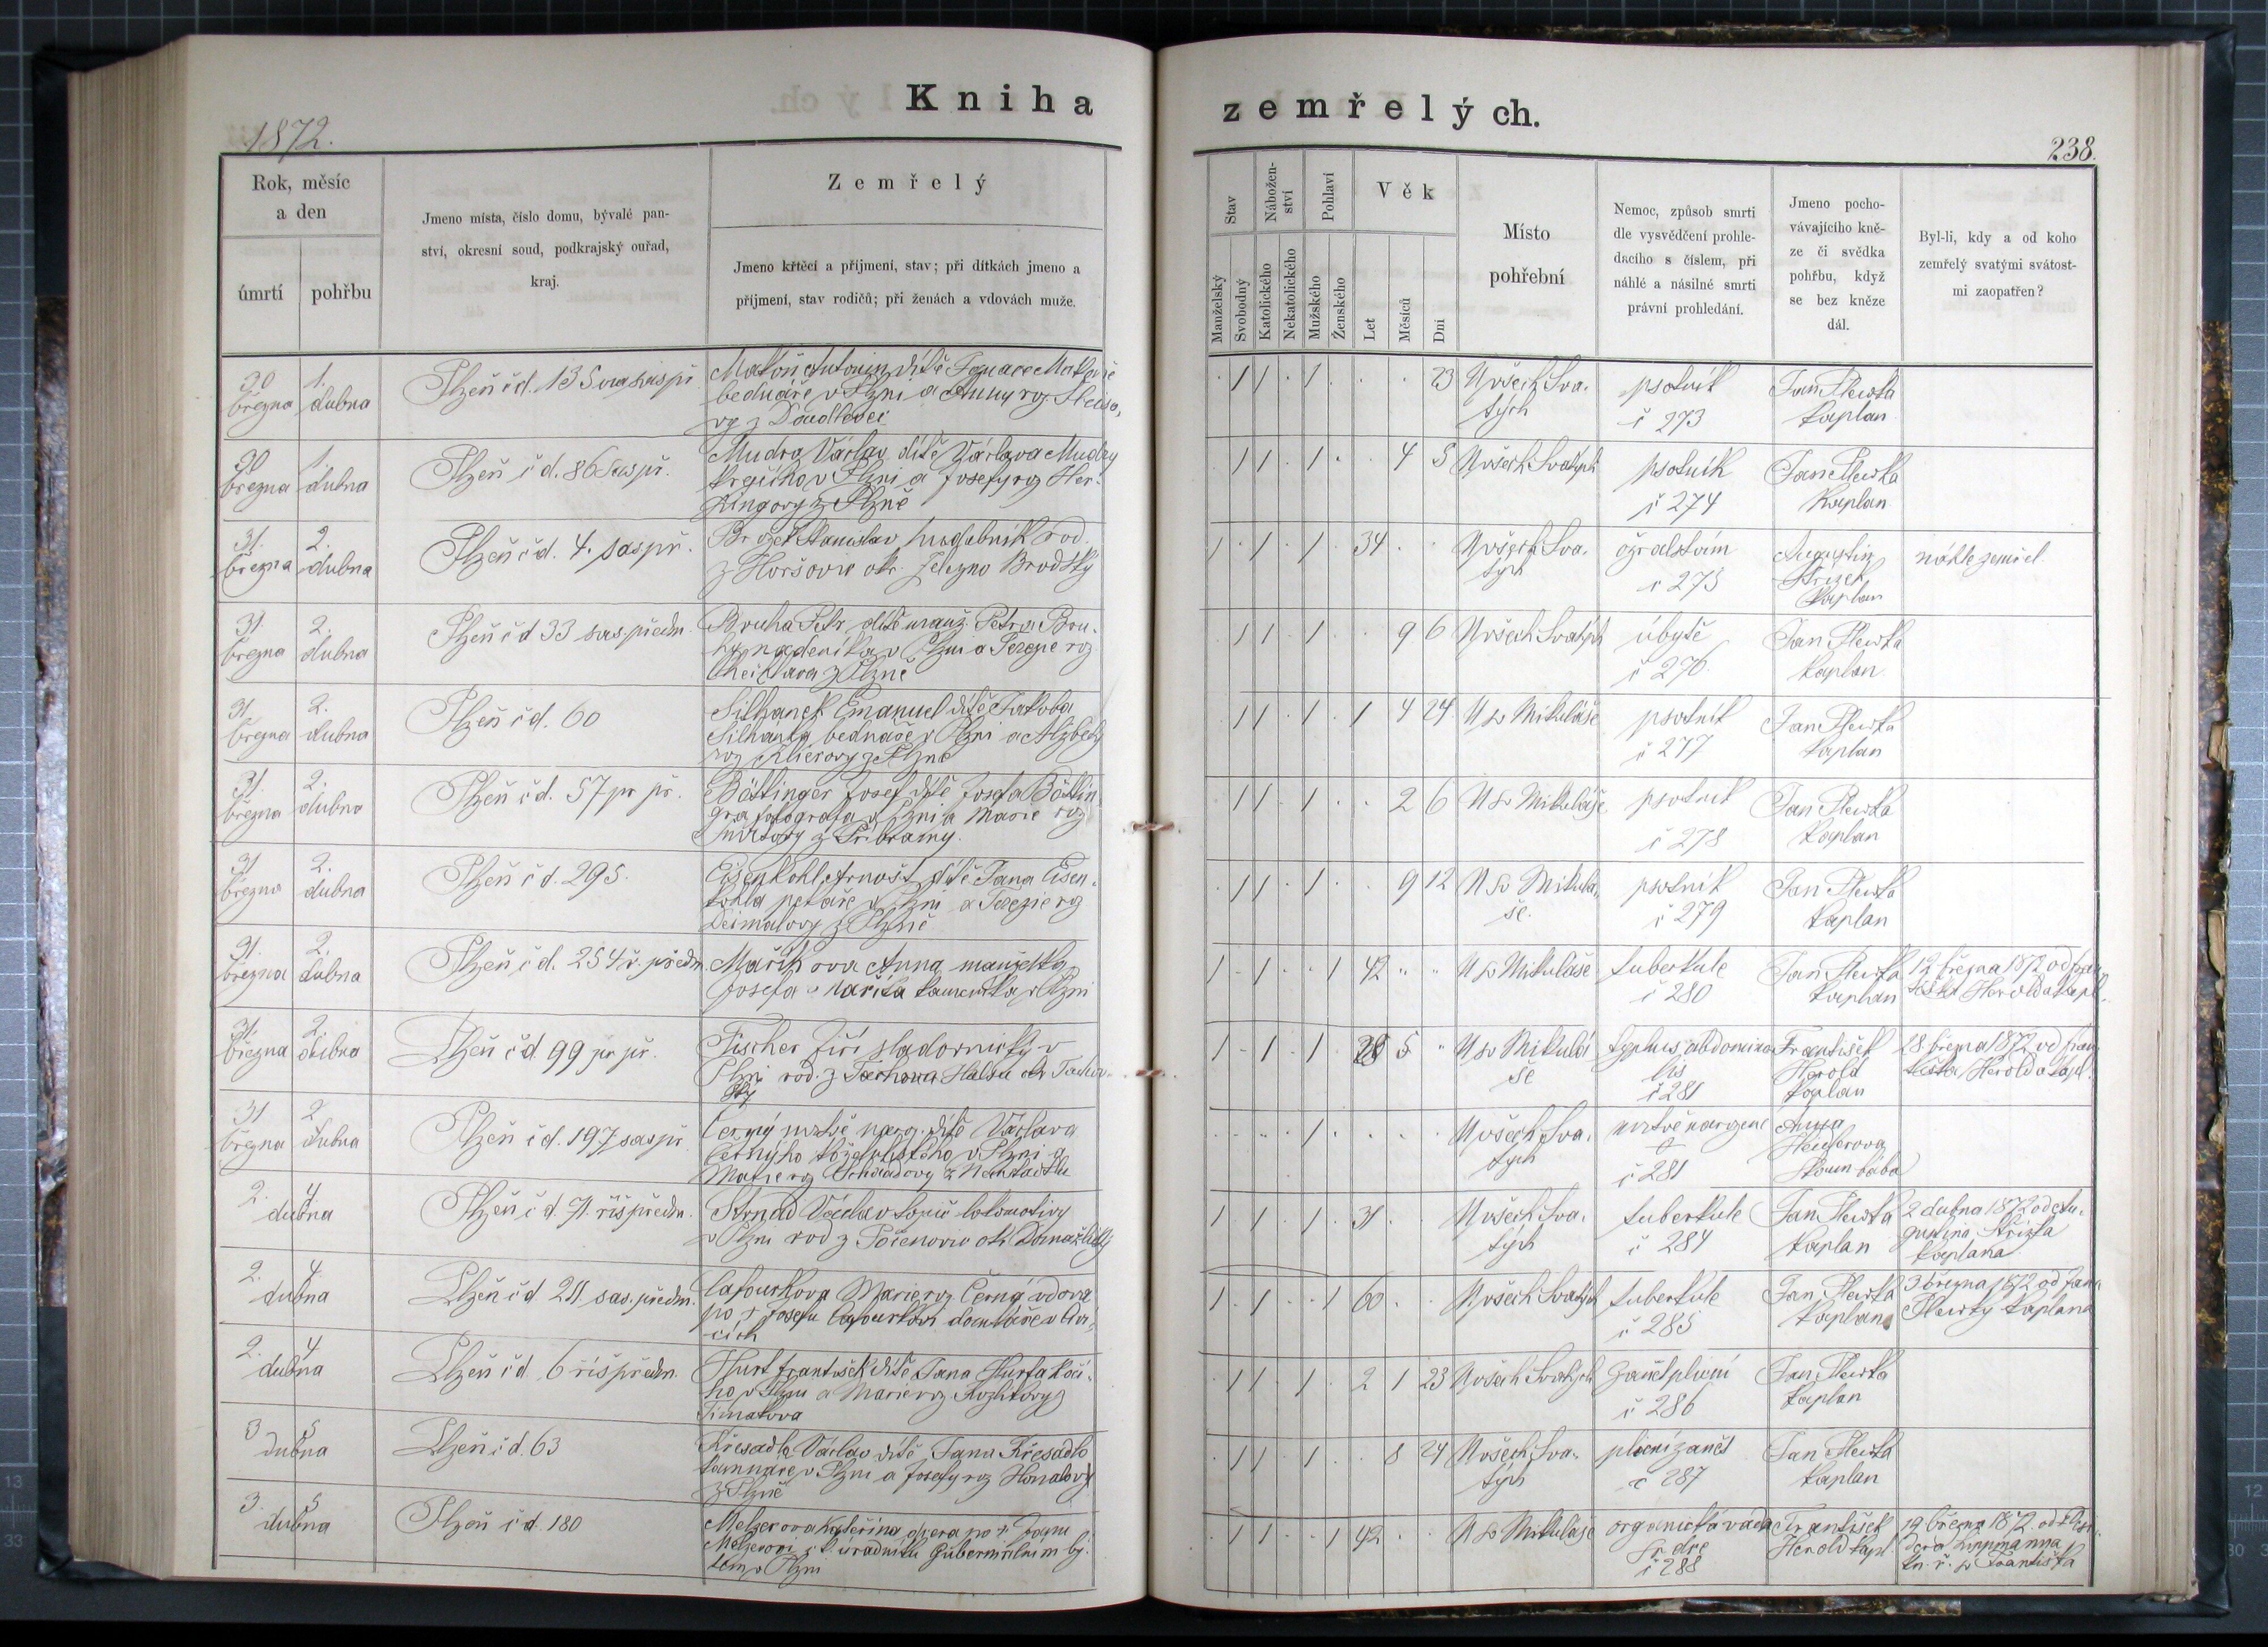 Kniha zemřelých.
1872.
238.
Rok, měsíc
a den
úmrtí
pohřbu
Jmeno místa, číslo domu, bývalé pan-
ství, okresní soud, podkrajský ouřad,
kraj.
Zemřelý
Jmeno křtěcí a příjmení, stav; při dítkách jmeno a
příjmení, stav rodičů; při ženách a vdovách muže.
Stav
Manželský
Svobodný
Nábožen-
ství
Katolického
Nekatolického
Pohlaví
Mužského
Ženského
Věk
Let
Měsíců
Dní
Místo
pohřební
Nemoc, způsob smrti
dle vysvědčení prohle-
dacího s číslem, při
náhlé a násilné smrti
právní prohledání.
Jmeno pocho-
vávajícího kně-
ze či svědka
pohřbu, když
se bez kněze
dál.
Byl-li, kdy a od koho
zemřelý svatými svátost-
mi zaopatřen?
30 března
1. dubna
Plzeň č d. 13
Matouš Antonín dítě Ignace
bednáře v Plzni a Anny roz.
z Doudlevec
23
U všech Sva-
tých
psotník
č 273
Jan Plewka
kaplan
30 března
1. dubna
Plzeň č d. 86 sas př.
Mudra Václav dítě Václava Mudry
krejčího v Plzni a Josefy roz Her-
z Plzně
4 5
U všech Svatých
psotník
č 274
Jan Plewka
kaplan
31. března
2. dubna
Plzeň č d. 4. sas př.
Brožek Stanislav hudebník rod.
z Horšovic okr. Železno Brodský
34
U všech Sva-
tých
č 275
Augustin
Střízek
kaplan
náhle zemřel
31 března
2. dubna
Plzeň č d 33 sas. předm.
Bruha Petr dítě manž. Petra Bru-
hy nádeníka v Plzni a Terezie roz
z Plzně
9 6
U všech Svatých
úbytě
č 276
Jan Plewka
kaplan
31. března
2. dubna
Plzeň č d. 60
Silhanek Emanuel dítě Jakoba
Silhanka bednáře v Plzni a Alžběty
roz z Plzně
1 4 24
U sv Mikuláše
psotník
č 277
Jan Plewka
kaplan
31. března
2. dubna
Plzeň č d. 57 pr př.
Böttinger Josef dítě Josefa Böttin-
gra fotografa v Plzni a Marie roz
z Příbramy.
2 6
U sv Mikuláše
psotník
č 278
Jan Plewka
kaplan
31 března
2. dubna
Plzeň č d. 295.
Eisenkohl Arnošt dítě Jana Eisen-
kohla pekaře v Plzni a Terezie roz
z Plzně
9 12
U sv Mikulá-
še.
psotník
č 279
Jan Plewka
kaplan
31. března
2. dubna
Plzeň č d. 254 ř. předm.
Maříkova Anna manželka
Josefa Maříka kameníka v Plzni
42
U sv Mikuláše
tuberkule
č 280
Jan Plewka
kaplan
12 března 1872 od Fran-
tiška Herolda kapl.
31. března
2. dubna
Plzeň č d. 99 pr př.
Fischer Jiří sladovnický v
Plzni rod. z Halsu okr Tachov-
ský
5
U sv Mikulá
še
typhus abdomina-
lis
č 281
František
Herold
kaplan
28 března 1872 od Fran-
tiška Herolda kapl.
31 března
2 dubna
Plzeň č d. 197 sas př
Černý mrtvě naroz. dítě Václava
Černýho v Plzni a
Marie roz
U všech Sva-
tých
mrtvě narozené
č 281
Anna
Heiderova
bába
2. dubna
4.
Plzeň č d. 71. říš předm.
Strnad Václav topič lokomotivy
v Plzni rod z okr Domažlický
31
U všech Sva-
tých
tuberkule
č 284
Jan Plewka
kaplan
2 dubna 1872 od Au-
gustina Střízka
kaplana
2. dubna
4
Plzeň č d 211 sas. předm.
Cafourkova Marie roz Černá vdova
po † Josefu Cafourkovi
60
U všech Svatých
tuberkule
č 285
Jan Plewka
kaplan
3 března 1872 od Jana
Plewky kaplana
2. dubna
4
Plzeň č d. 6 říš předm.
Hurt František dítě Jana Hurta kočí-
ho v Plzni a Marie roz z
2 1 23
U všech Svatých
zánět plicní
č 286
Jan Plewka
kaplan
3 dubna
5
Plzeň č d. 63
Křesadlo Václav dítě Jana Křesadlo
kamnáře v Plzni a Josefy roz
z Plzně
8 24
U všech Sva-
tých
plicní zánět
č 287
Jan Plewka
kaplan
3. dubna
5
Plzeň č d. 180
Melzerova Kateřina dcera po † Janu
Melzerovi úředníku Gubernialním by-
tem v Plzni
42
U sv Mikuláše
organická vada
srdce
č 288
František
Herold kapl.
19 března 1872. od